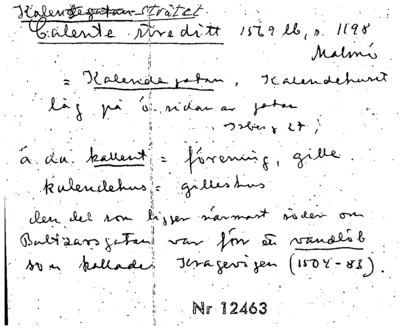 Kalendegatan strätet
Calente streditt 1569 lb, s. 1198
Malmö
= Kalendegatan, Kalendehuset
låg på ö. sidan av gatan
Isberg 27;
ä.da. kallent = förening, gille
kalendehus = gilleshus
den del som ligger närmast söder om
Baltzarsgatan var förr en vandlöb
som kallades Kragevigen (1504-83).
Nr 12463